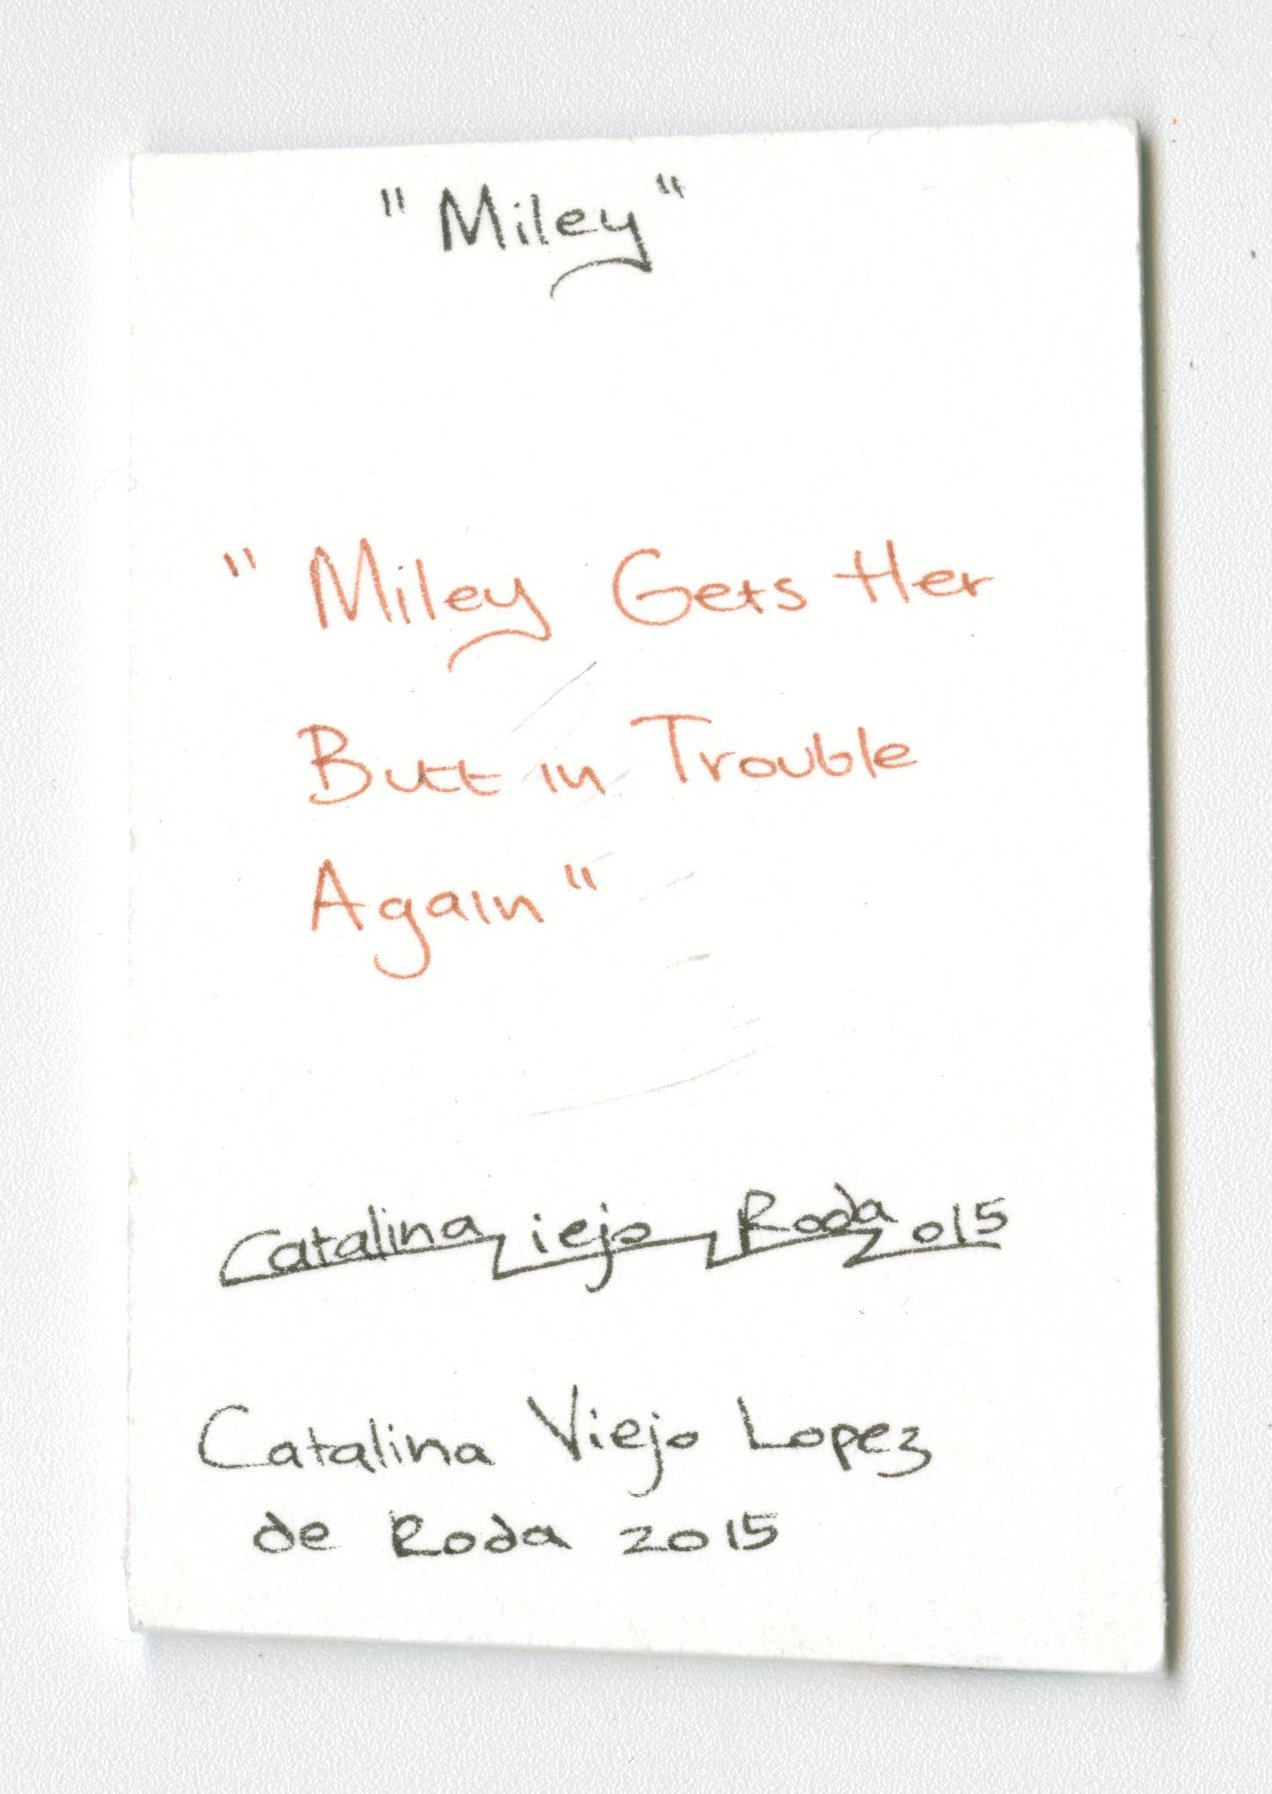 "Miley"
"Miley Gets Her
Butt in Trouble
Again"
Catalina Viejo Roda 2015
Catalina Viejo Lopez
de Roda 2015